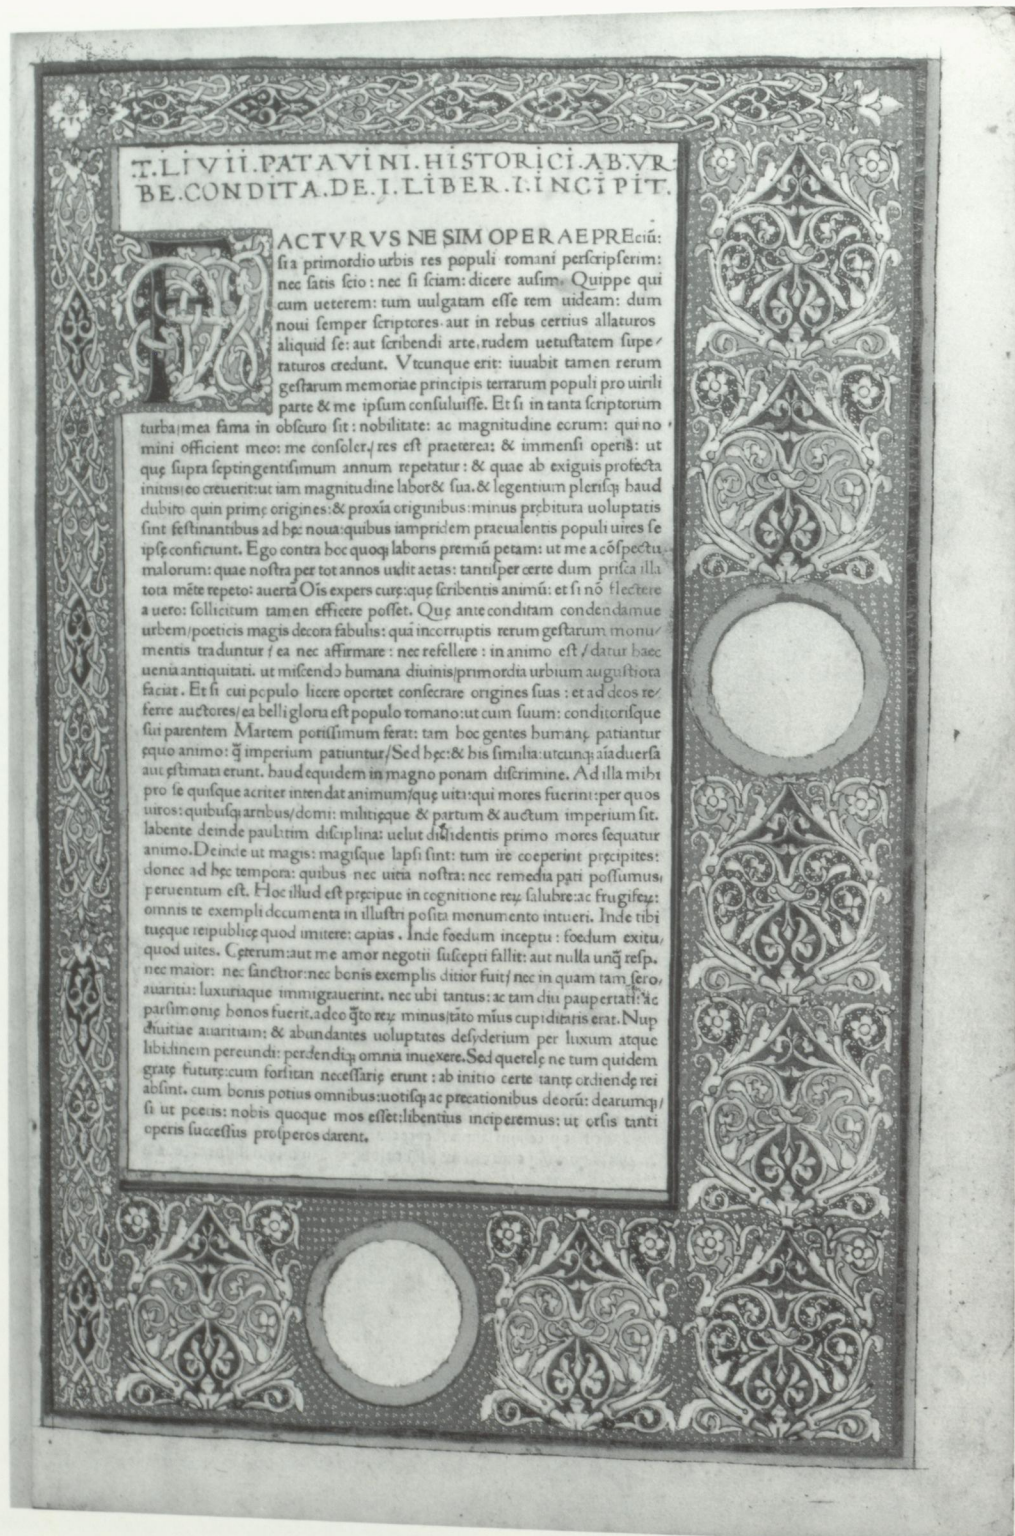 .T.LIVII.PATAVINI.HISTORICI.AB.VR:
BE.CONDITA.DE.I.LIBER.I.INCIPIT.
FACTVRVS NE SIM OPERAE PREciũ:
si a primordio urbis res populi romani perscripserim:
nec satis scio: nec si sciam: dicere ausim. Quippe qui
cum ueterem: tum uulgatam esse rem uideam: dum
noui semper scriptores. aut in rebus certius allaturos
aliquid se: aut scribendi arte. rudem uetustatem supe/
raturos credunt. Vtcunque erit: iuuabit tamen rerum
gestarum memoriae principis terrarum populi pro uirili
parte & me ipsum consuluisse. Et si in tanta scriptorum
turba/mea fama in obscuro sit: nobilitate: ac magnitudine eorum: qui no
mini officient meo: me consoler/res est praeterea: & immensi operis: ut
quę supra septingentisimum annum repetatur: & quae ab exiguis profecta
initiis: eo creuerit: ut iam magnitudine labor& sua. & legentium plerisq; haud
dubito quin primę origines: & proxĩa originibus: minus prębitura uoluptatis
sint festinantibus ad hęc noua: quibus iampridem praeualentis populi uires se
ipsę conficiunt. Ego contra hoc quoq; laboris premiũ petam: ut me a cõspectu
malorum: quae nostra per tot annos uidit aetas: tantisper certe dum prisca illa
tota mẽte repeto: auertã Oĩs expers curę: quę scribentis animũ: et si nõ flectere
a uero: sollicitum tamen efficere posset. Quę ante conditam condendamue
urbem/poeticis magis decora fabulis: quã incorruptis rerum gestarum monu/
mentis traduntur/ea nec affirmare: nec refellere: in animo est/datur haec
uenia antiquitati. ut miscendo humana diuinis/primordia urbium augustiora
faciat. Et si cui populo licere oportet consecrare origines suas: et ad deos re/
ferre auctores/ea belli gloria est populo romano: ut cum suum: conditorisque
sui parentem Martem potissimum ferat: tam hoc gentes humanę patiantur
ęquo animo: q̃ imperium patiuntur/Sed hęc: & his similia: utcunq; aĩaduersa
aut ęstimata erunt. haud equidem in magno ponam discrimine. Ad illa mihi
pro se quisque acriter intendat animum/quę uita: qui mores fuerint: per quos
uiros: quibusq; artibus/domi: militięque & partum & auctum imperium sit.
labente deinde paulatim disciplina: uelut dissidentis primo mores sequatur
animo. Deinde ut magis: magisque lapsi sint: tum ire coeperint pręcipites:
donec ad hęc tempora: quibus nec uitia nostra: nec remedia pati possumus,
peruentum est. Hoc illud est pręcipue in cognitione reꝝ salubre: ac frugiferꝝ:
omnis te exempli documenta in illustri posita monumento intueri. Inde tibi
tuęque reipublicę quod imitere: capias. Inde foedum inceptu: foedum exitu,
quod uites. Cęterum: aut me amor negotii suscepti fallit: aut nulla unq̃ resp.
nec maior: nec sanctior: nec bonis exemplis ditior fuit/nec in quam tam sero,
auaritia: luxuriaque immigrauerint. nec ubi tantus: ac tam diu paupertati: ac
parsimonię honos fuerit. adeo q̃to reꝝ minus/tãto mĩus cupiditatis erat. Nup
diuitiae auaritiam: & abundantes uoluptates desyderium per luxum atque
libidinem pereundi: perdendiq; omnia inuexere. Sed querelę ne tum quidem
gratę futurę: cum forsitan necessarię erunt: ab initio certe tantę ordiendę rei
absint. cum bonis potius omnibus: uotisq; ac precationibus deorũ: dearumq;/
si ut poetis: nobis quoque mos esset: libentius inciperemus: ut orsis tanti
operis successus prosperos darent.